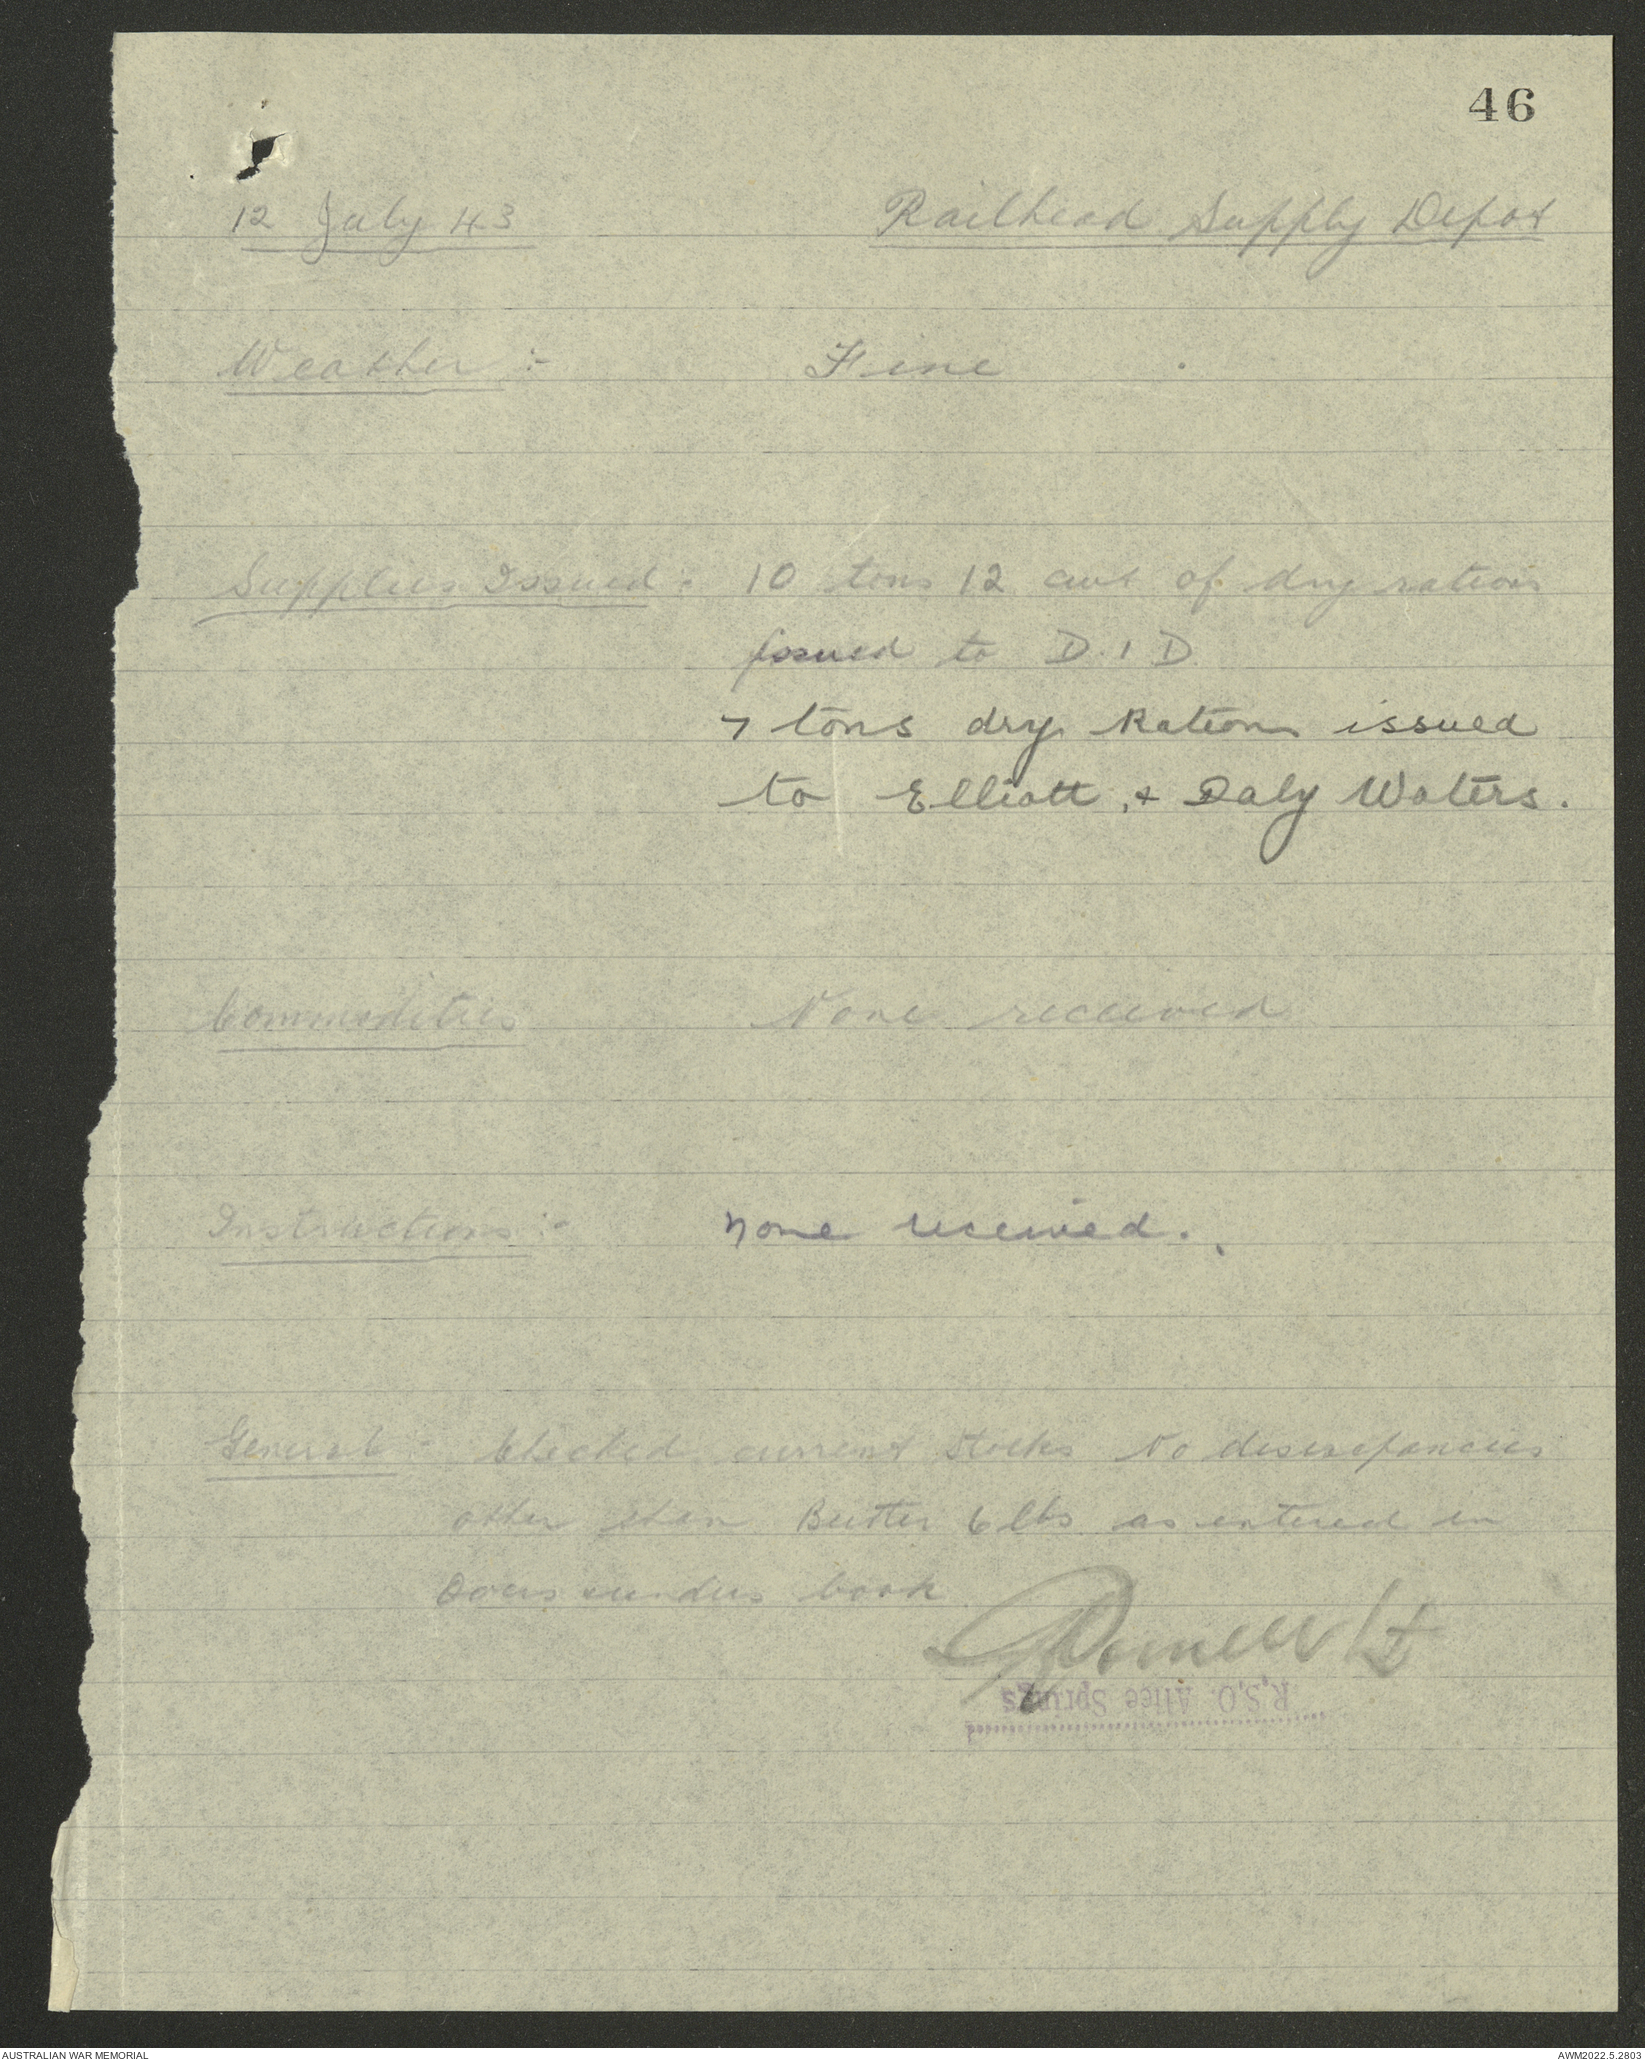 46
12 July 43 Railhead Supply Depot
Weather :- Fine
Supplies Issued :- 10 tons 12 cwt of dry rations
issued to D.I.D
7 tons dry Rations issued
to Elliott, & Daly Waters.
Commodities None received
Instructions :- None received.
General :- Checked current stocks No discrepancies
other than Butter 6 lbs as entered in
Overs unders book
Lt
R.S.O. Alice Springs
AUSTRALIAN WAR MEMORIAL AWM2022.5.2803